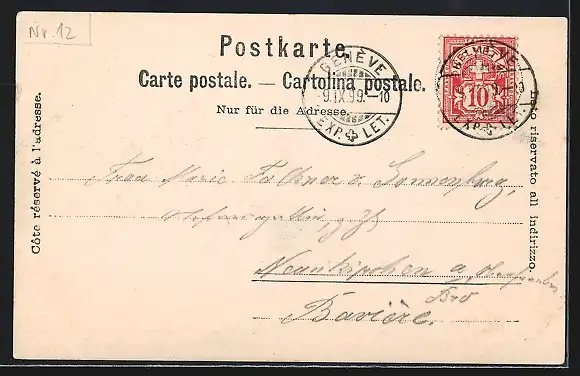 Nr. 12
Postkarte.
Carte postale. — Cartolina postale.
Nur für die Adresse.
Côté réservé à l'adresse.
Lato riservato all indirizzo.
GENÈVE
9.IX.99.-10
EXP. LET.
HELVETIA
10
EXP. LET.
Frau Marie Falkner v. Sonnenburg,
Neunkirchen a.
Bavière.